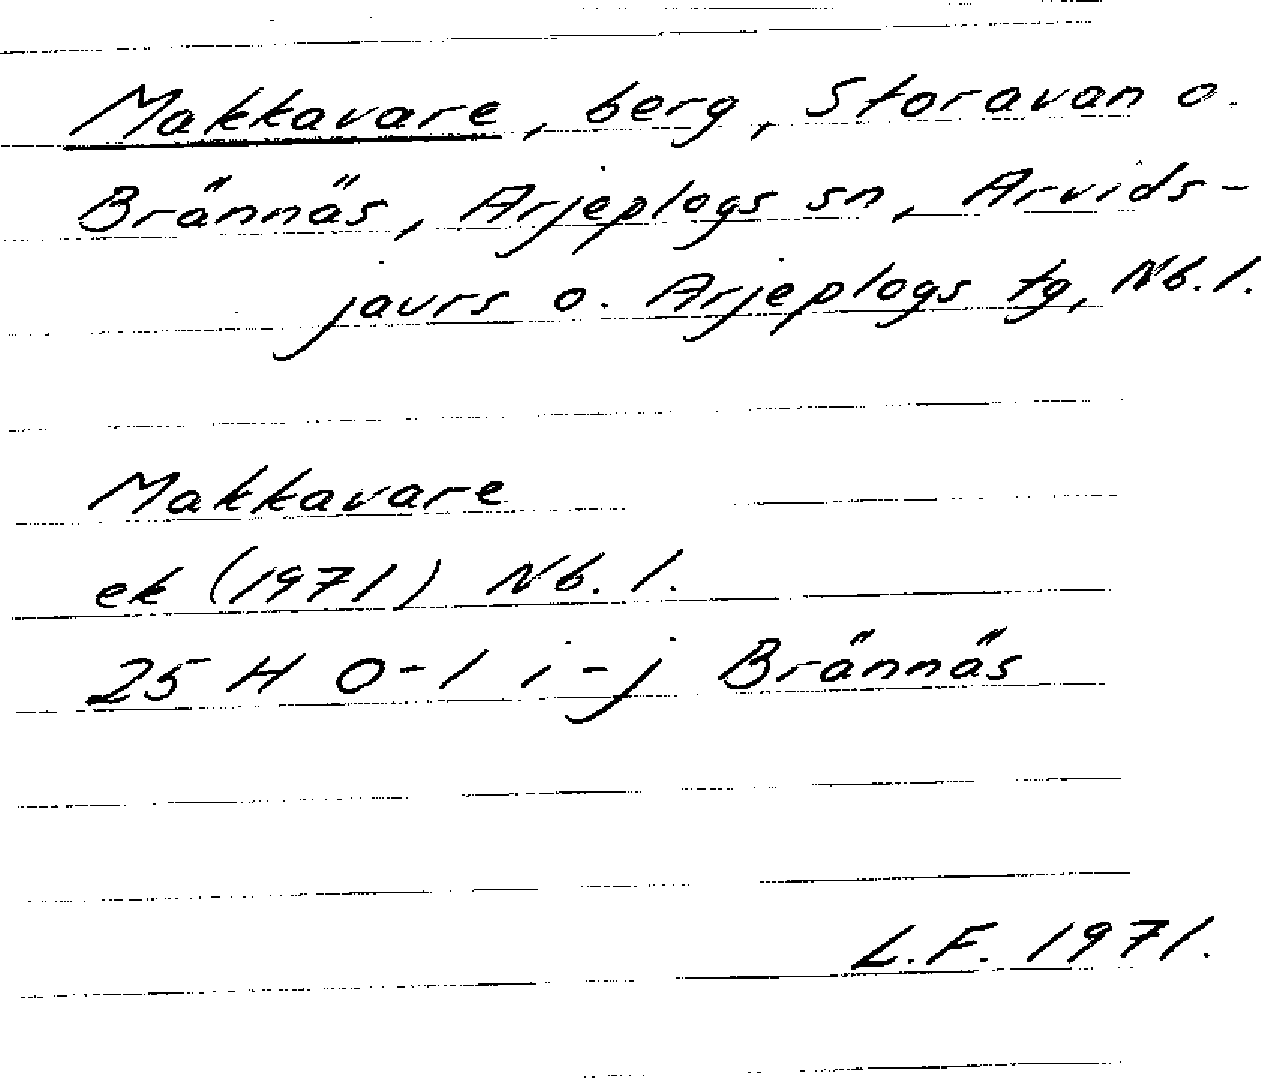 Makkavare, berg, Storavan o.
Brännäs, Arjeplogs sn, Arvids-
jaurs o. Arjeplogs tg, Nb. l.
Makkavare
ek (1971) Nb. l.
25 H 0-1 i-j Brännäs
L.F. 1971.